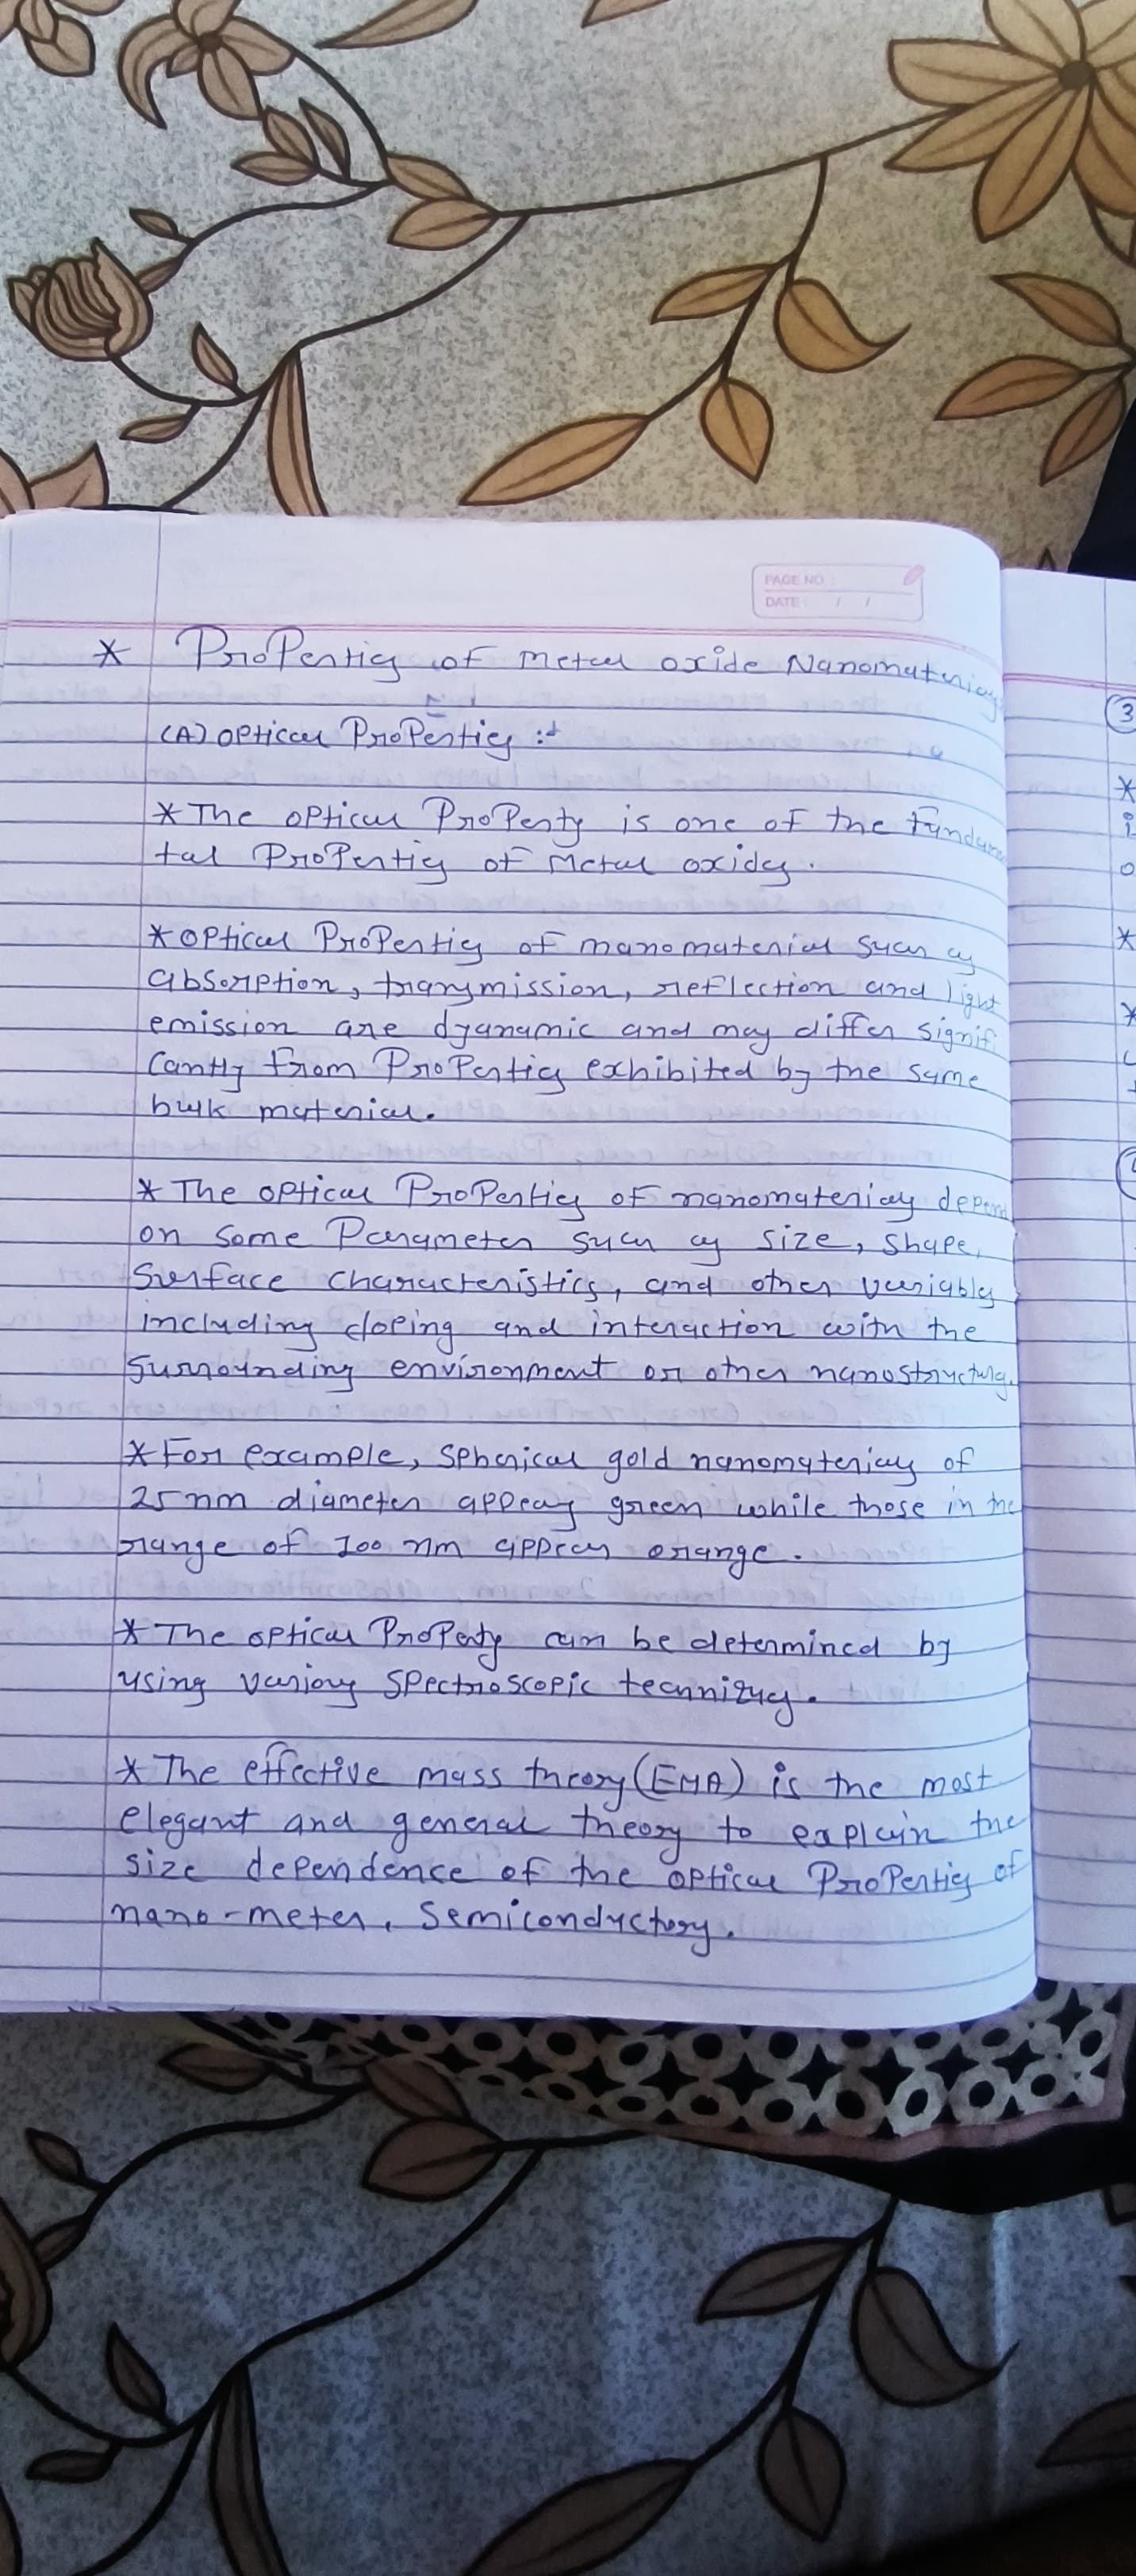 PAGE NO :
DATE : / /
* Properties of metal oxide Nanomaterials
(A) optical Properties :-
* The optical Property is one of the Fundamen
tal Properties of Metal oxides.
* optical Properties of nanomaterial such as
absorption, transmission, reflection and light
emission are dyanamic and may differ signifi
cantly from Properties exhibited by the same
bulk material.
* The optical Properties of nanomaterials depend
on some Parameter such as size, shape,
Surface characteristics, and other variables
including doping and interaction with the
surrounding environment or other nanostructures.
* For example, spherical gold nanomaterials of
25 nm diameter appears green while those in the
range of 100 nm appear orange.
* The optical Property can be determined by
using various spectroscopic techniques.
* The effective mass theory (EMA) is the most
elegant and general theory to explain the
size dependence of the optical Properties of
nano-meter, Semiconductors.
3
*
*
*